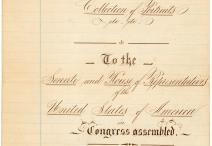 Collection of Portraits
etc. etc.
To the
Senate and House of Representatives
of the
United States of America
in
Congress assembled.